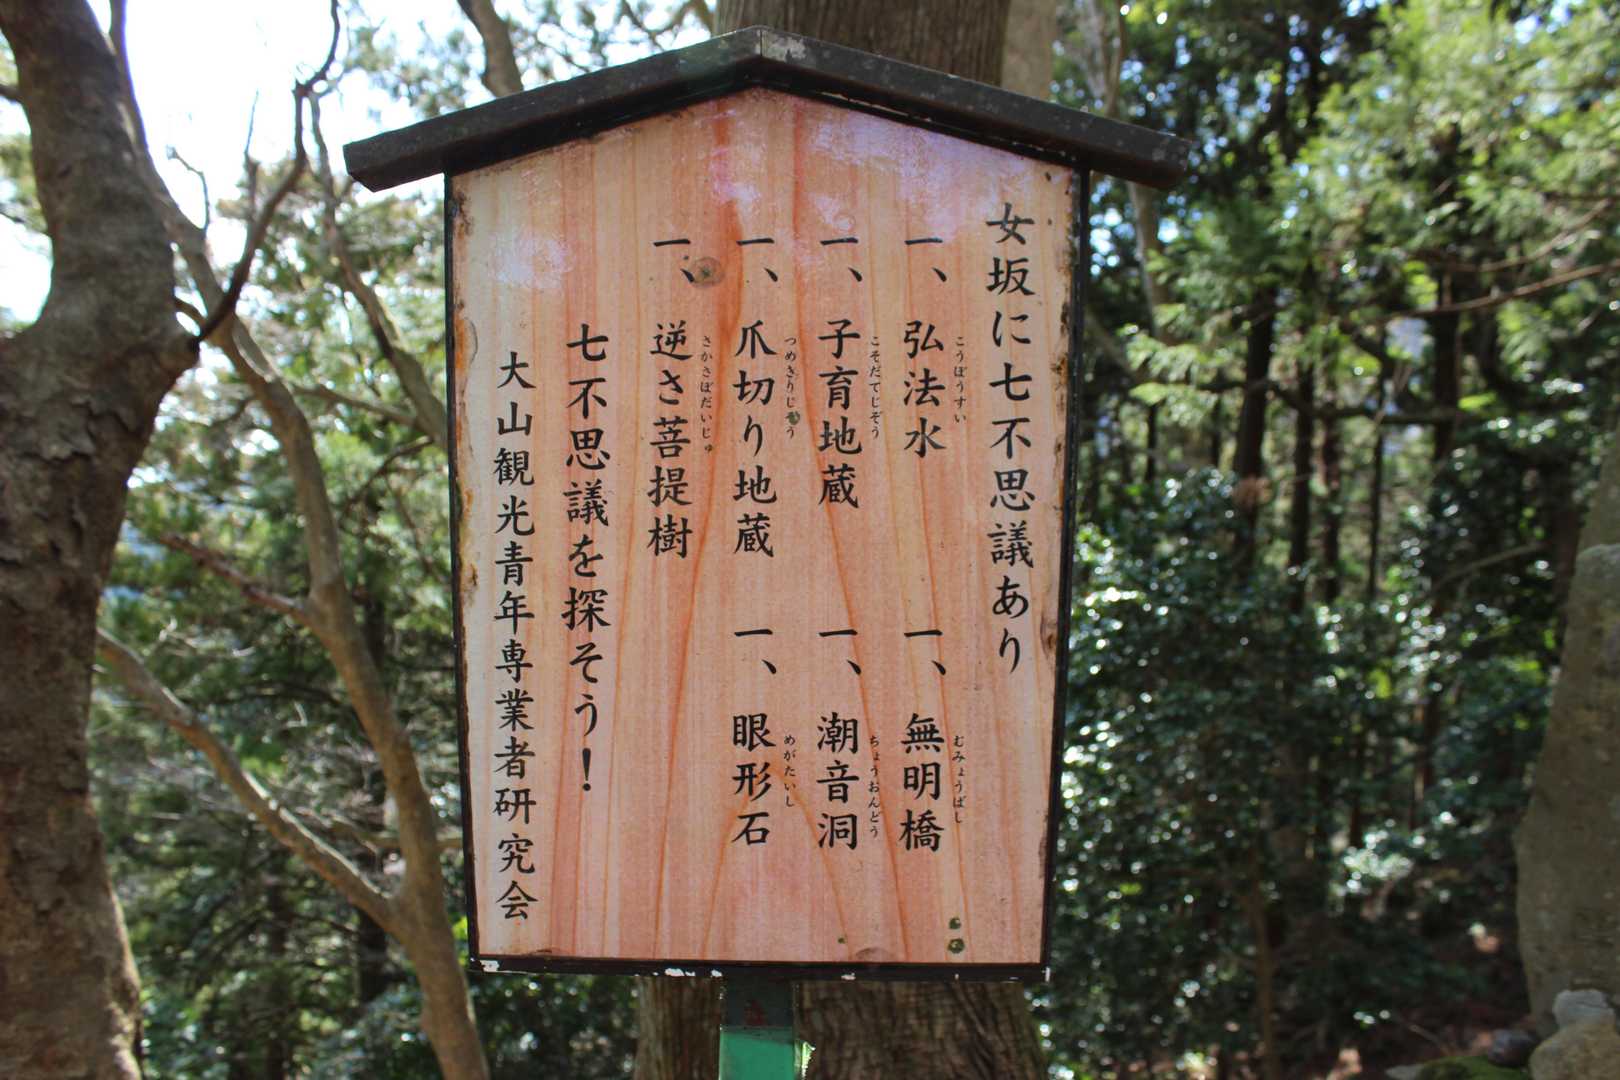 女坂に七不思議あり
一、弘法水
こうぼうすい
一、無明橋
むみょうばし
一、子育地蔵
こそだてじぞう
一、潮音洞
ちょうおんどう
一、爪切り地蔵
一、眼形石
めがたいし
一、逆さ菩提樹
さかさぼだいじゅ
七不思議を探そう！
大山観光青年専業者研究会